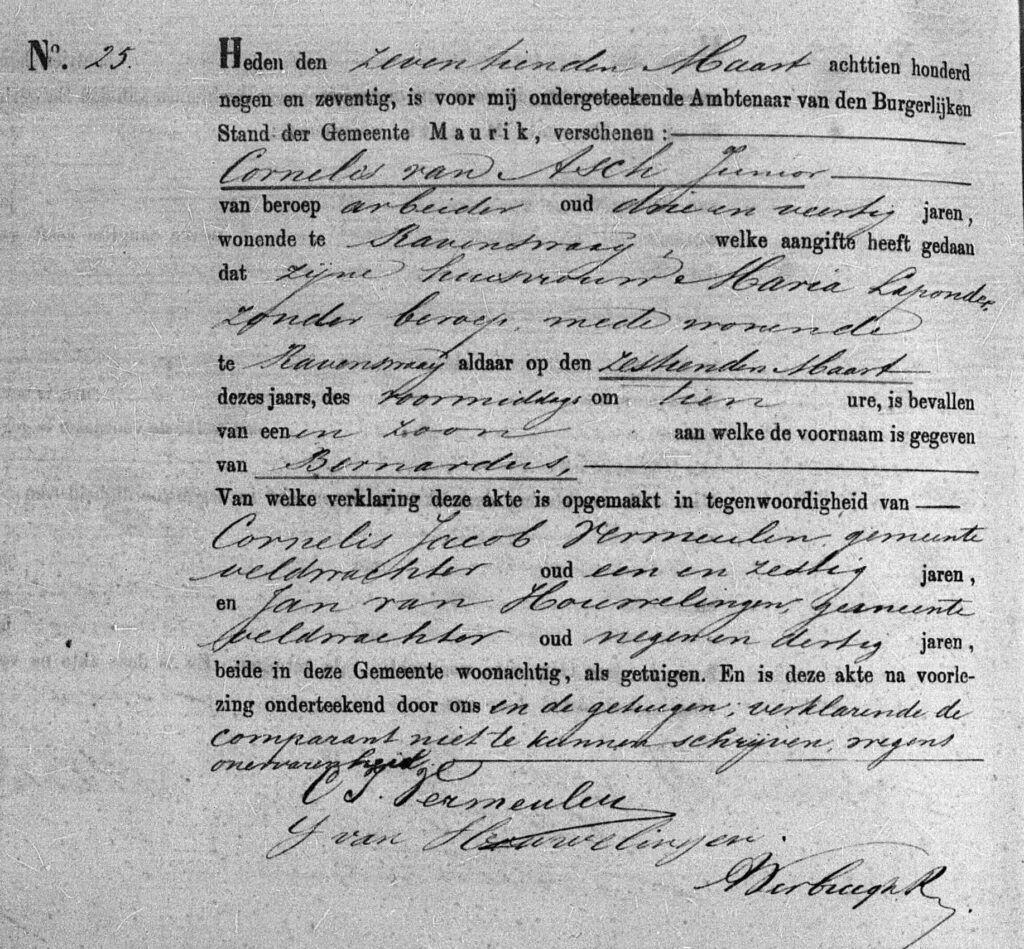 No. 25. Heden den zeventienden Maart achttien honderd
negen en zeventig, is voor mij ondergeteekende Ambtenaar van den Burgerlijken
Stand der Gemeente Maurik, verschenen :
Cornelis van Asch Junior
van beroep arbeider oud drie en veertig jaren,
wonende te Ravenswaaij, welke aangifte heeft gedaan
dat zijne huisvrouw Maria Laponder,
zonder beroep, mede wonende
te Ravenswaaij aldaar op den zestienden Maart
dezes jaars, des voormiddags om tien ure, is bevallen
van een en zoon aan welke de voornaam is gegeven
van Bernardus,
Van welke verklaring deze akte is opgemaakt in tegenwoordigheid van
Cornelis Jacob Vermeulen, gemeente
veldwachter oud een en zestig jaren,
en Jan van Houwelingen, gemeente
veldwachter oud negen en dertig jaren,
beide in deze Gemeente woonachtig, als getuigen. En is deze akte na voorle-
zing onderteekend door ons en de getuigen; verklarende de
comparant niet te kunnen schrijven, wegens
onervarenheid.
C J. Vermeulen
J van Houwelingen.